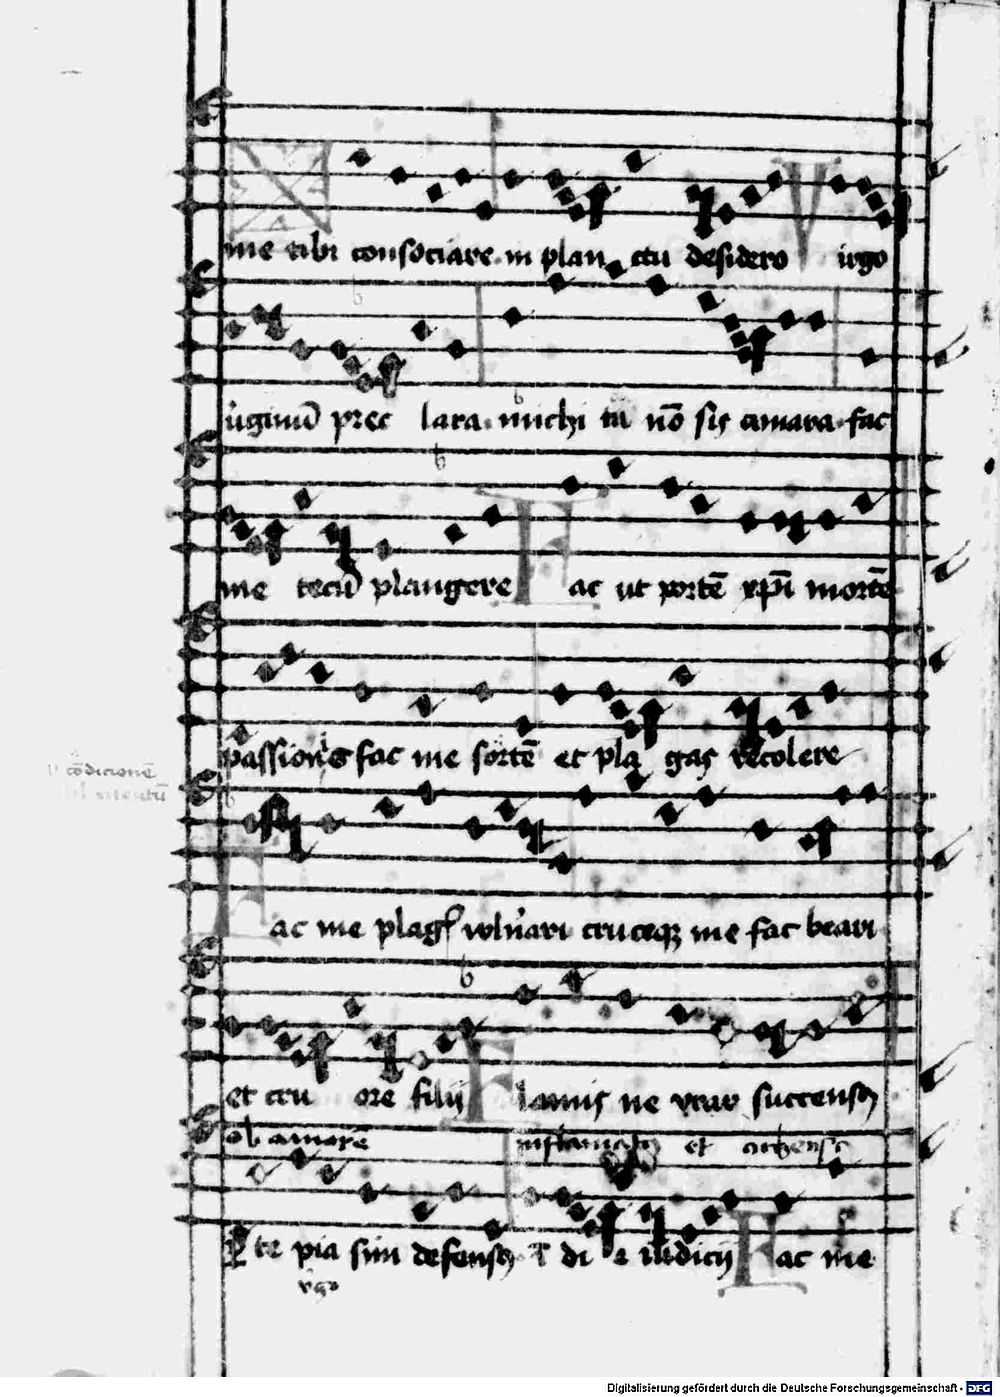 me tibi consociare in planctu desidero Virgo
virginũ preclara michi iã nõ sis amara fac
me tecũ plangere Fac ut portẽ xpĩ mortẽ
passionis fac me sortẽ et plagas recolere
Fac me plagis vulnerari cruceque me fac beari
et cruore filij Flamis ne urar succensus
ob amorẽ inflamatus et accensus
te pia sim defensus ĩ die iudicij Fac me
vgo
Digitalisierung gefördert durch die Deutsche Forschungsgemeinschaft - DFG